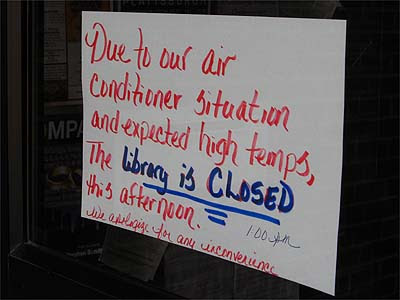 PLATTSBURGH
Due to our air
Conditioner situation
and expected high temps,
The library is CLOSED
this afternoon.
1:00 PM
We apologize for any inconvenience